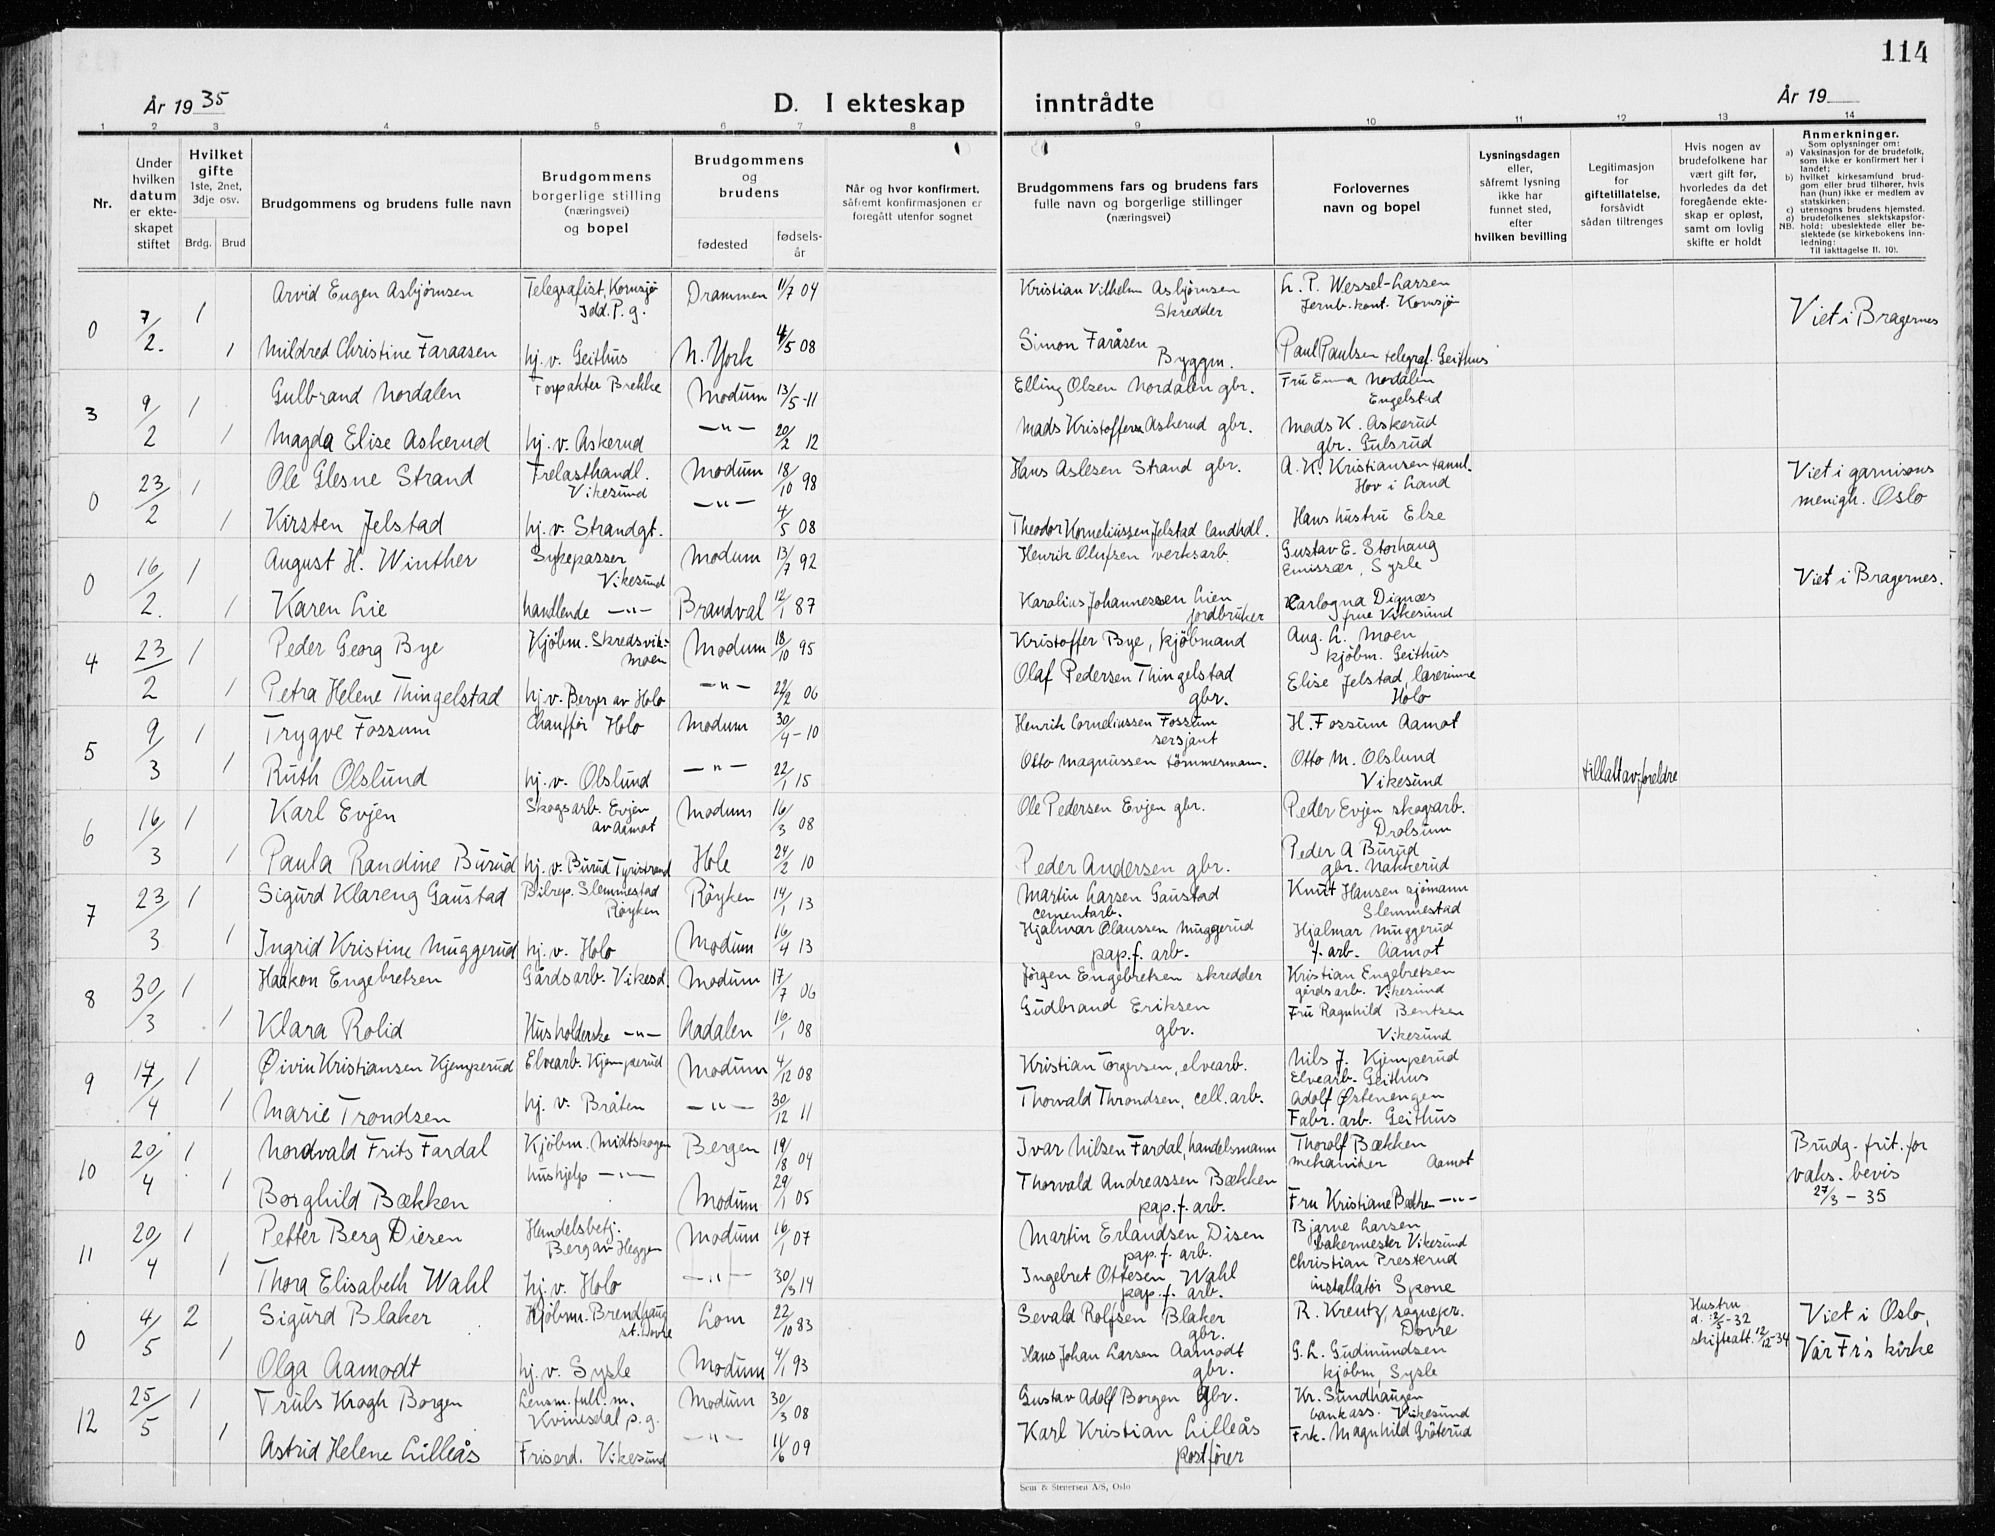 114
År 1935
D. I ekteskap inntrådte
År 19
1 2 3 4 5 6 7 8 9 10 11 12 13 14
Nr.
Under hvilken datum er ekteskapet stiftet
Hvilket gifte 1ste, 2net, 3dje osv.
Brdg. Brud
Brudgommens og brudens fulle navn
Brudgommens borgerlige stilling (næringsvei) og bopel
Brudgommens og brudens
fødested
fødselsår
Når og hvor konfirmert, såfremt konfirmasjonen er foregått utenfor sognet
Brudgommens fars og brudens fars fulle navn og borgerlige stillinger (næringsvei)
Forlovernes navn og bopel
Lysningsdagen eller, såfremt lysning ikke har funnet sted, efter hvilken bevilling
Legitimasjon for giftetillatelse, forsåvidt sådan tiltrenges
Hvis nogen av brudefolkene har vært gift før, hvorledes da det foregående ekteskap er opløst, samt om lovlig skifte er holdt
Anmerkninger.
Som oplysninger om:
a) Vaksinasjon for de brudefolk, som ikke er konfirmert her i landet;
b) hvilket kirkesamfund brudgom eller brud tilhører, hvis han (hun) ikke er medlem av statskirken;
c) utensogns brudens hjemsted.
d) brudefolkenes slektskapsforhold: ubeslektede eller beslektede (se kirkebokens innledning:
NB.
Til iakttagelse II. 10).
0 7/2. 1 Arvid Eugen Asbjørnsen Telegrafist, Kornsjø Idd. P.g. Drammen 11/7 04 Kristian Vilhelm Asbjørnsen Skredder L. P. Wessel-Larsen Jernb. kont. Kornsjø Viet i Bragernes
1 Mildred Christine Faraasen hj. v. Geithus N. York 4/5 08 Simon Faråsen Byggm. Paul Paulsen telegraf. Geithus
3 9/2 1 Gulbrand Nordalen Forpakter Brekke Modum 13/5-11 Elling Olsen Nordalen gbr. Fru Emma Nordalen Engelstad
1 Magda Elise Askerud hj. v. Askerud —"— 20/2 12 Mads Kristoffersen Askerud gbr. Mads K. Askerud gbr. Gulsrud
0 23/2 1 Ole Glesne Strand Trelasthandl. Vikesund Modum 18/10 98 Hans Aslesen Strand gbr. A. K. Kristiansen tannl. Hov i Land Viet i garnisons menigh. Oslo
1 Kirsten Jelstad hj. v. Strandgt. —"— 4/5 08 Theodor Korneliussen Jelstad landhdl. Hans hustru Else
0 16/2. 1 August H. Winther Sykepasser Vikesund Modum 13/7 92 Henrik Olufsen verksarb Gustav E. Storhaug Emissær, Sysle Viet i Bragernes.
1 Karen Lie handlende —"— Brandval 12/1 87 Karolius Johannessen Lien jordbruker Karlogna Dignæs frue Vikesund
4 23/2 1 Peder Georg Bye Kjøbm. Skredsvikmoen Modum 18/10 95 Kristoffer Bye, kjøbmand Aug. L. Moen kjøbm. Geithus
1 Petra Helene Thingelstad hj. v. Berger av Holo —"— 22/2 06 Olaf Pedersen Thingelstad gbr. Elise Jelstad, lærerinne Holo
5 9/3 1 Trygve Fossum Chauffør Holo Modum 30/4-10 Henrik Corneliussen Fossum sersjant H. Fossum Aamot
1 Ruth Olslund hj. v. Olslund —"— 22/1 15 Otto Magnussen tømmermann. Otto M. Olslund Vikesund tillatt av foreldre
6 16/3 1 Karl Evjen Skogsarb. Evjen av Aamot Modum 16/3 08 Ole Pedersen Evjen gbr. Peder Evjen skogsarb. Drolsum
1 Paula Randine Burud hj. v. Burud Tyristrand Hole 24/2 10 Peder Andersen gbr. Peder A Burud gbr. Nakkerud
7 23/3 1 Sigurd Klareng Gaustad Bilrep. Slemmestad Røyken Røyken 14/1 13 Martin Larsen Gaustad cementarb. Knut Hansen sjømann Slemmestad
1 Ingrid Kristine Muggerud hj. v. Holo Modum 16/4 13 Hjalmar Olaussen Muggerud pap.f. arb. Hjalmar Muggerud f. arb. Aamot
8 30/3 1 Haakon Engebretsen Gårdsarb. Vikesd. Modum 17/7 06 Jørgen Engebretsen skredder Kristian Engebretsen gårdsarb. Vikesund
1 Klara Rolid Husholderske —"— Aadalen 16/1 08 Gudbrand Eriksen gbr. Fru Ragnhild Bentsen Vikesund
9 17/4 1 Øivin Kristiansen Kjemperud Elvearb. Kjemperud Modum 4/12 08 Kristian Torgersen, elvearb. Nils J. Kjemperud Elvearb. Geithus
1 Marie Trondsen hj. v. Bråten —"— 30/12 11 Thorvald Throndsen, cell. arb. Adolf Østenengen Fabr. arb. Geithus
10 20/4 1 Nordvald Frits Fardal Kjøbm. Midtskogen Bergen 19/8 04 Ivar Nilsen Fardal, handelsmann Thorolf Bækken mekaniker Aamot Brudg. frit. for vaks. bevis 27/3-35
1 Borghild Bækken hushjelp —"— Modum 29/1 05 Thorvald Andreassen Bækken pap.f. arb. Fru Kristiane Bækken —"—
11 20/4 1 Petter Berg Diesen Handelsbetj. Berg av Heggen Modum 16/1 07 Martin Erlandsen Disen pap.f. arb. Bjarne Larsen bakermester Vikesund
1 Thora Elisabeth Wahl hj. v. Holo —"— 30/3 14 Ingebret Ottesen Wahl pap.f. arb. Christian Presterud installatør Spone
0 4/5 2 Sigurd Blaker Kjøbm. Brendhaug st. Dovre Lom 22/10 83 Sevald Rolfsen Blaker gbr. R. Kreutz, sognepr. Dovre Hustru d. 2/5-32 skifteatt. 12/12-34 Viet i Oslo, Vår Fr's kirke
1 Olga Aamodt hj. v. Sysle Modum 4/1 93 Hans Johan Larsen Aamodt gbr. G. L. Gudmundsen kjøbm, Sysle
12 25/5 1 Truls Krogh Borgen Lensm. fullm. Kvinesdal p.g. Modum 30/3 08 Gustav Adolf Borgen gbr. Kr. Sundhaugen bankass. Vikesund
1 Astrid Helene Lilleås Friserd. Vikesund —"— 11/6 09 Karl Kristian Lilleås postfører Frk. Magnhild Gröterud
Sem & Stenersen A/S, Oslo